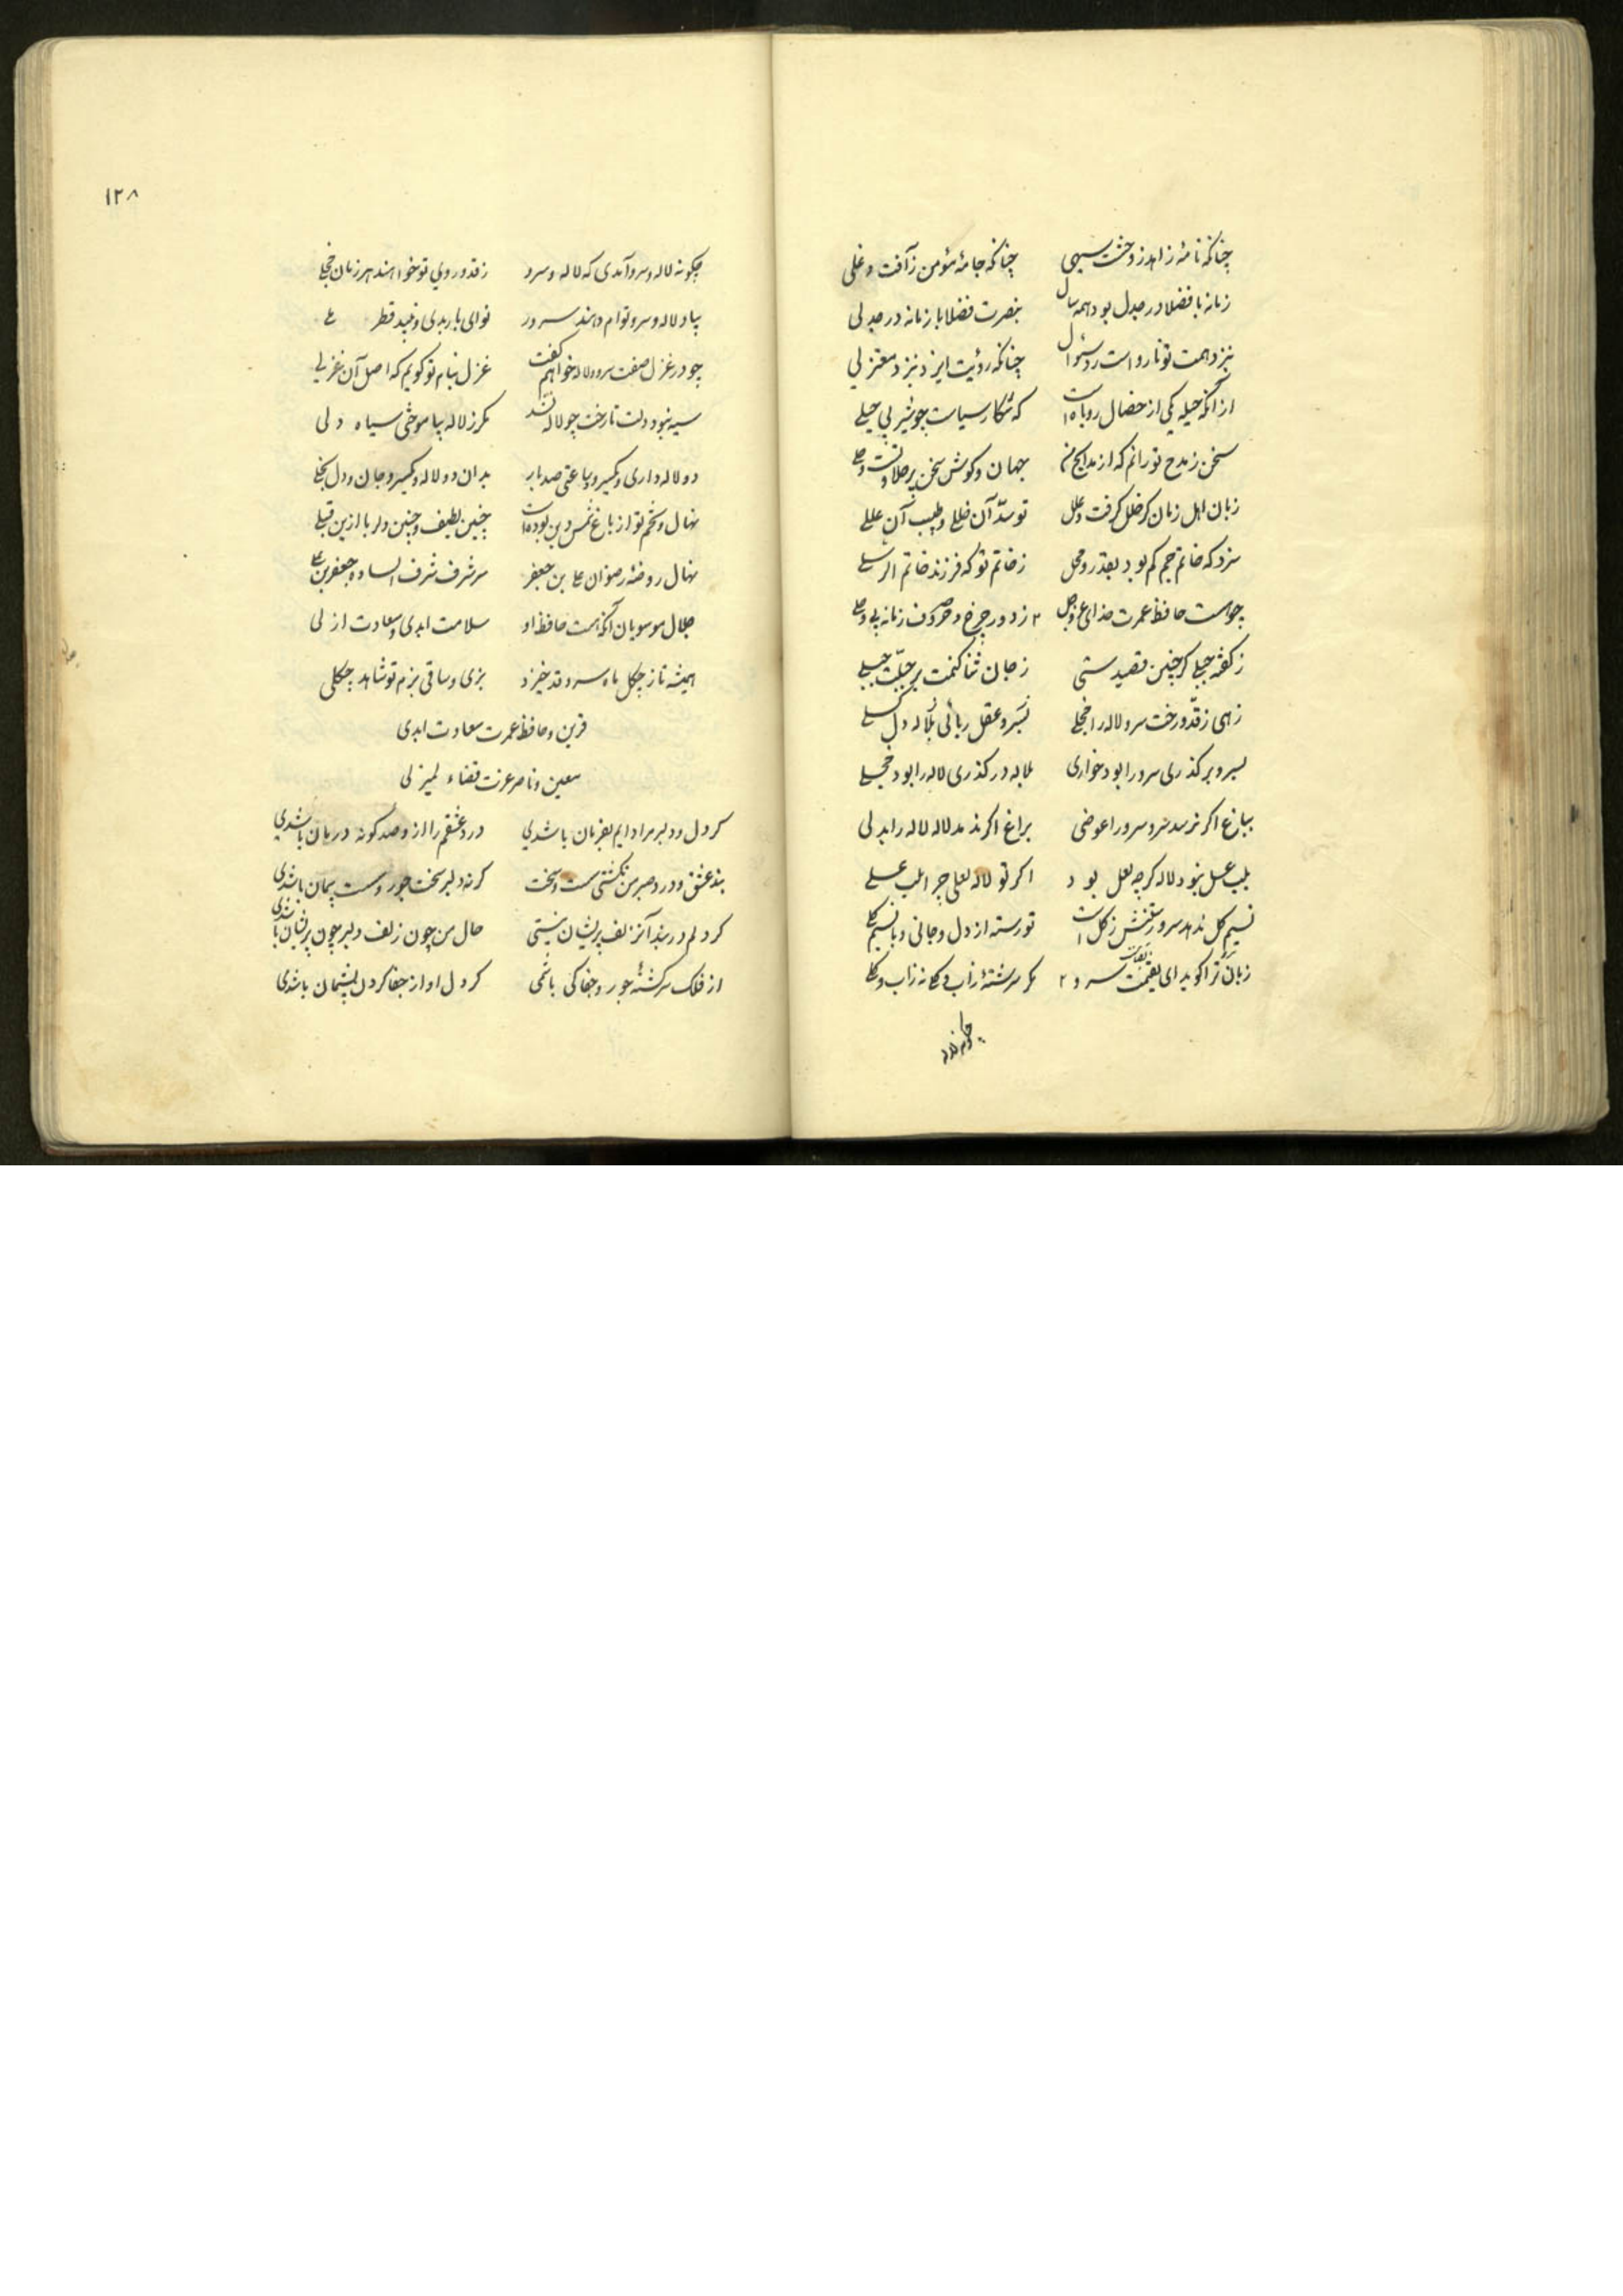 چنانکه نامهٔ زاهد ز وحشت سیهی چنانکه جامهٔ مؤمن ز آفت و غلی
زمانه با فضلا در جدل بود همه سال بنصرت فضلا با زمانه در جدلی
بنزد همت تو نارواست رد سؤال چنانکه رؤیت ایزد بنزد معتزلی
از آنکه حیله یکی از خصال روباه است که شکار سیاست چو شیر بی حیلی
سخن ز مدح تو رانم که از مدایح تو جهان و کوش سخن پر حلاوتست و حلی
زبان اهل زمان کر خلل کرفت و علل تو سد آن خللی و طبیب آن عللی
سزد که خاتم جم کم بود بقدر و محل ز خاتم تو که فرزند خاتم الرسلی
چو هست حافظ عمرت خدای عز و جل ز دور چرخ و صروف زمانه بی وجلی
ز کفتهٔ جبلی کر چنین قصیدستی ز جان ثنا کنمت بر جبلت جبلی
زهی ز قد و رخت سرو لاله را خجلی بسرو عقل ربائی بلاله دل کسلی
بسرو بر کذری سرو را بود خواری بلاله در کذری لاله را بود خجلی
بباغ اکر نرسد سرو سرو را عوضی براغ اکر ندمد لاله لاله را بدلی
بلب عسل نبود لاله کرچه لعل بود اکر تو لاله لعلی چرا بلب عسلی
نسیم کل ندهد سرو رستنش ز کل است تو رسته از دل و جانی و با نسیم کلی
زبان ترا کوید ای بقیمت سرو مکر سرشتهٔ زاب و کلی نه زاب و کلی
چکونه لاله
۱۲۸
چکونه لاله و سرو آمدی که لاله و سرو ز قد و روی تو خواهند هر زمان خجلی
بیاد لاله و سرو تو ام دهند سرور نوای باربدی و نبید قطر
چو در غزل صفت سرو و لاله خواهم کفت غزل بنام تو کویم که اصل آن غزلی
سیه نبود دلت تا رخت چو لاله نشد مکر ز لاله بیاموختی سیاه دلی
دو لاله داری و کیسو و ساعتی صد بار بدان دو لاله و کیسو جان و دل بخلی
نهال و تخم تو از باغ شمس دین بوده است چنین لطیف و چنین دلربا ازین قبلی
نهال روضهٔ رضوان علی بن جعفر سر شرف شرف الساده جعفر بن علی
جلال موسویان آنکه هست حافظ او سلامت ابدی و سعادت ازلی
همیشه تا ز چکل ماه سرو قد خیزد بزی و ساقی بزم تو شاهد چکلی
قرین و حافظ عمرت سعادت ابدی
معین و ناصر عزت قضاء لمیزلی
کر دل و دلبر مرا دایم بفرمان باشدی درد عشقم را از و صد کونه درمان باشدی
بند عشق و درد صبر من نکشتی سست و سخت کر نه دلبر سخت جور و سست پیمان باشدی
کر دلم در بند آنزلف پریشان نیستی حال من چون زلف دلبر چون پریشان باشدی
از فلک سرکشتهٔ جور و جفا کی باشمی کر دل او از جفا کردن پشیمان باشدی